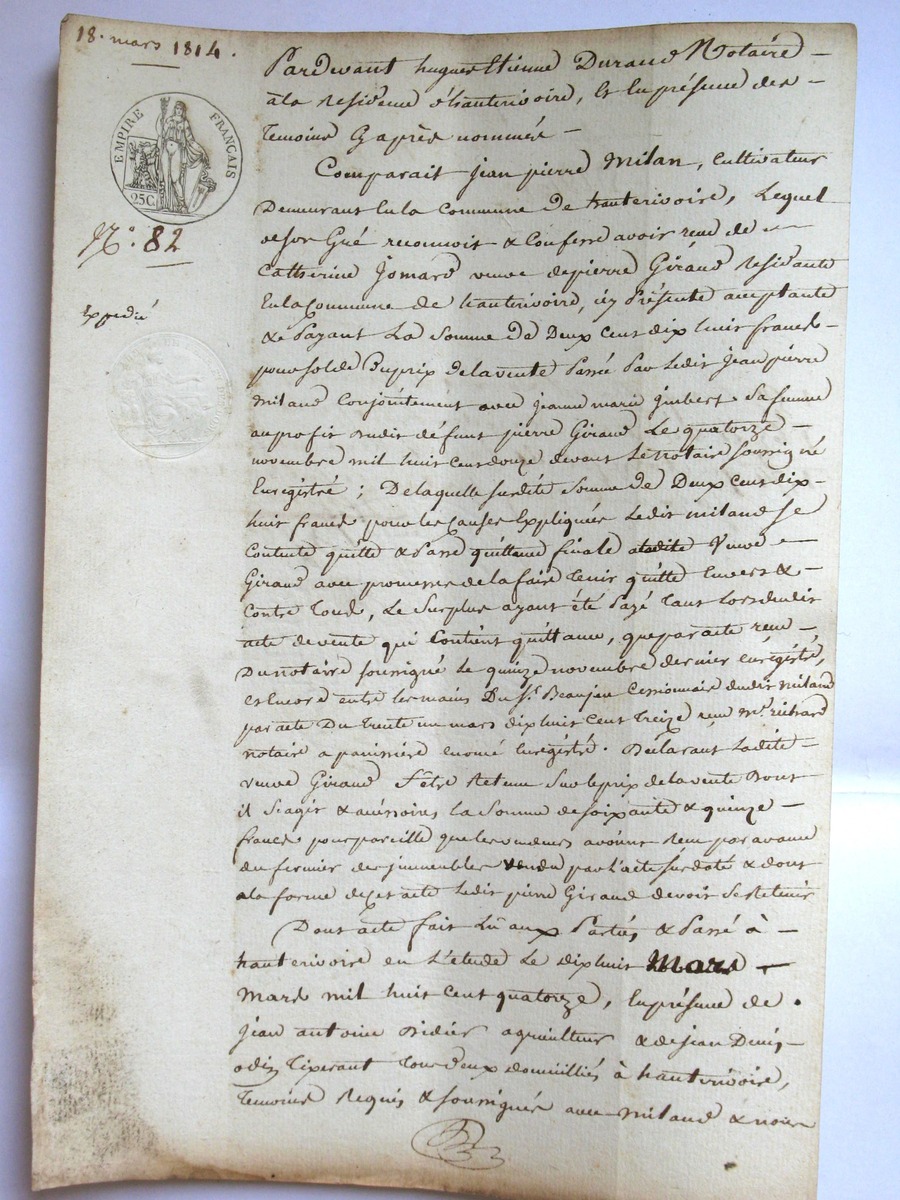 18. mars 1814.
EMPIRE FRANÇAIS
25C
N.° 82
Expedié
Pardevant hugues Etienne Durand Notaire
ala residence d'hauterivoire, et en présence des
temoins cy après nommés
Comparait jean pierre Milan, cultivateur
Demeurant en la Commune de hauterivoire, Lequel
de son Gré reconnoit & Confesse avoir reçu de
Catherine Jomard veuve de pierre Giraud residante
en la Commune de hauterivoire, icy présente acceptante
& Payant La Somme de Deux Cent dix huit francs
pour solde Du prix de la vente Passé Par Ledit jean pierre
Miland Conjointement avec jeanne marie jmbert Sa femme
au profit dudit défunt pierre Giraud Le quatorze
novembre mil huit cent douze devant Le Notaire soussigné
Enregistré ; De laquelle susdite Somme de Deux Cent dix
huit francs pour les Causes Expliquées Ledit miland se
Contente quitte & Passe quittance finale aladite Veuve
Giraud avec promesse de la faire tenir quitte Envers &
Contre tous, Le Surplus ayant été Payé tant Lors dudit
acte de vente qui Contient quittance, que par acte reçu
Du notaire soussigné Le quinze novembre dernier enrégistré,
et Encore entre les mains Du S.r Beaujeu Cessionnaire dudit miland
par acte Du trente un mars dix huit cent treize reçu M.e richard
notaire a panissière enomé Enregistré. Déclarant Ladite
veuve Giraud S'être Retenue Sur le prix de la vente Dont
il S'agit & accéssoires la Somme de soixante & quinze
francs pour pareille que les vendeurs avoient Reçu par avance
du fermier des jmmeubles vendu par l'acte sus daté & dont
ala forme de cet acte Ledit pierre Giraud devoit Se Retenir
Dont acte fait Lû aux Parties & Passé à
hauterivoire en L'étude Le dix huit Mars
Mars mil huit Cent quatorze, En présence de
jean antoine Didier agriculteur & de jean Denis
odin tixerant tous deux domiciliés à hauterivoire,
temoins Requis & soussignés avec miland & nous